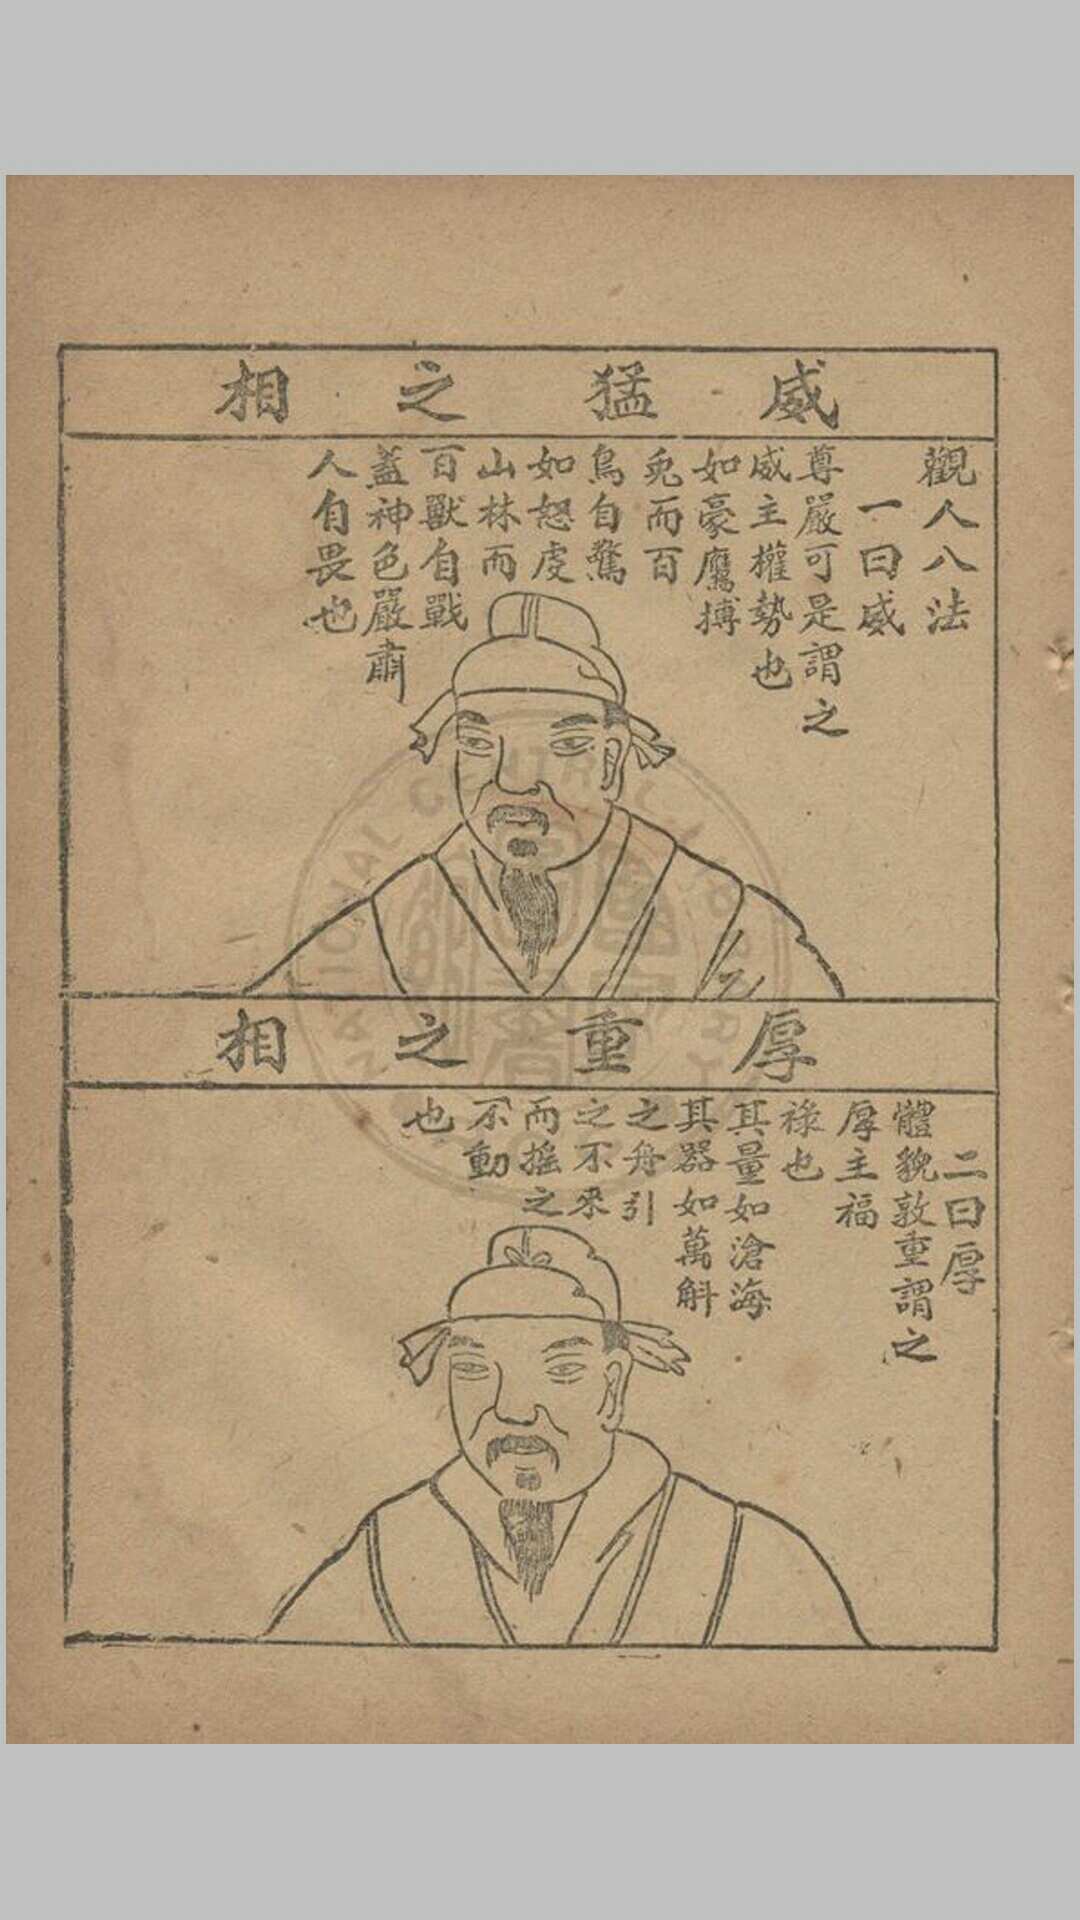 威猛之相
觀人八法
一曰威
尊嚴可是謂之
威主權勢也
如豪鷹搏
兎而百
鳥自驚
如怒虎
山林而
百獸自戰
蓋神色嚴肅
人自畏也
厚重之相
二曰厚
體貌敦重謂之
厚主福
祿也
其量如滄海
其器如萬斛
之舟引
之不來
而搖之
不動
也
NATIONAL CENTRAL LIBRARY